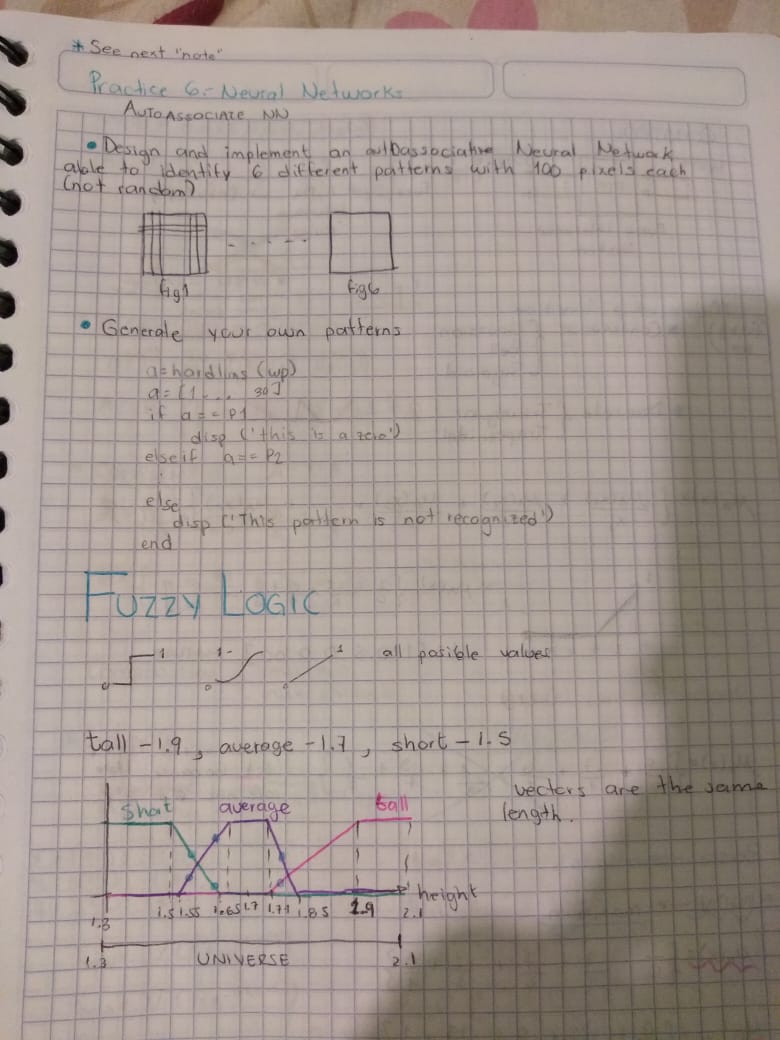 * See next "note"
Practice 6.- Neural Networks
AUTOASSOCIATE NN
• Design and implement an autoassociative Neural Network
able to identify 6 different patterns with 100 pixels each
(not random)
fig1 fig6
• Generate your own patterns
a=hardlims (wp)
a= [1 . . . 30]
if a == P1
disp ('this is a zero')
elseif a== P2
else
disp ('This pattern is not recognized')
end
FUZZY LOGIC
0 1 0 1- 0 1 all posible values
tall -1.9, average -1.7, short -1.5
vectors are the same
length.
short average tall
height
1.3 1.5 1.55 1.65 1.7 1.85 1.9 2.1
1.3 UNIVERSE 2.1